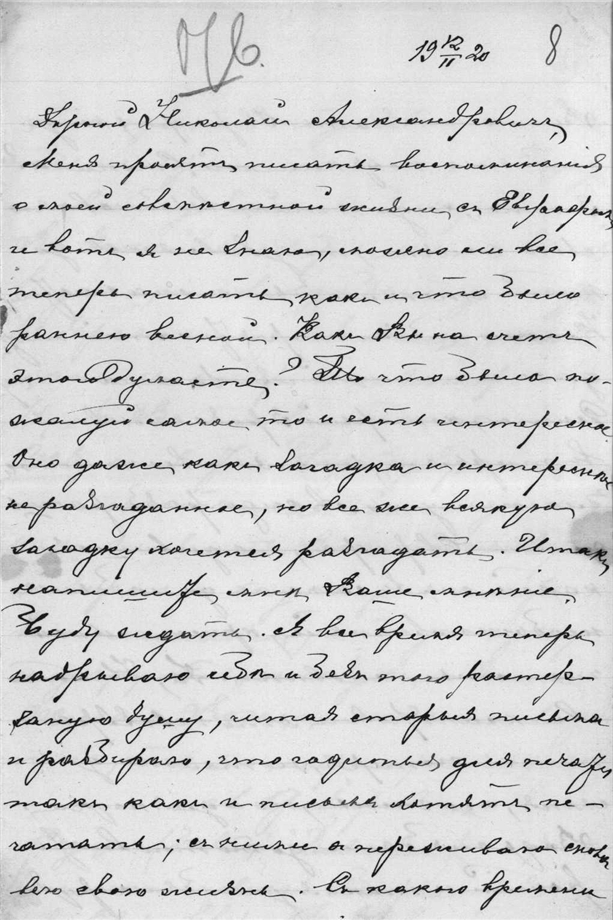 19 12/II 20 8
Дорогой Николай Александровичъ,
Меня просятъ писать воспоминания
о моей совместной жизни съ Евграфомъ
и вотъ я не знаю, можно ли все
теперь писать какъ и что было
раннею весной. Какъ Вы на счетъ
этого думаете? То что было по-
жалуй самое то и есть интересное.
Оно даже какъ загадка и интереснее
не разгаданное, но все же всякую
загадку хочется разгадать. Итакъ
напишите мнѣ Ваше мнѣнiе.
Буду ждать. Я все время теперь
надрываю себѣ и безъ того растер-
занную душу, читая старыя письма
и разбираю, что годится для печати
такъ какъ и письма хотятъ пе-
чатать; съ ними я переживаю снова
всю свою жизнь. Съ какого времени